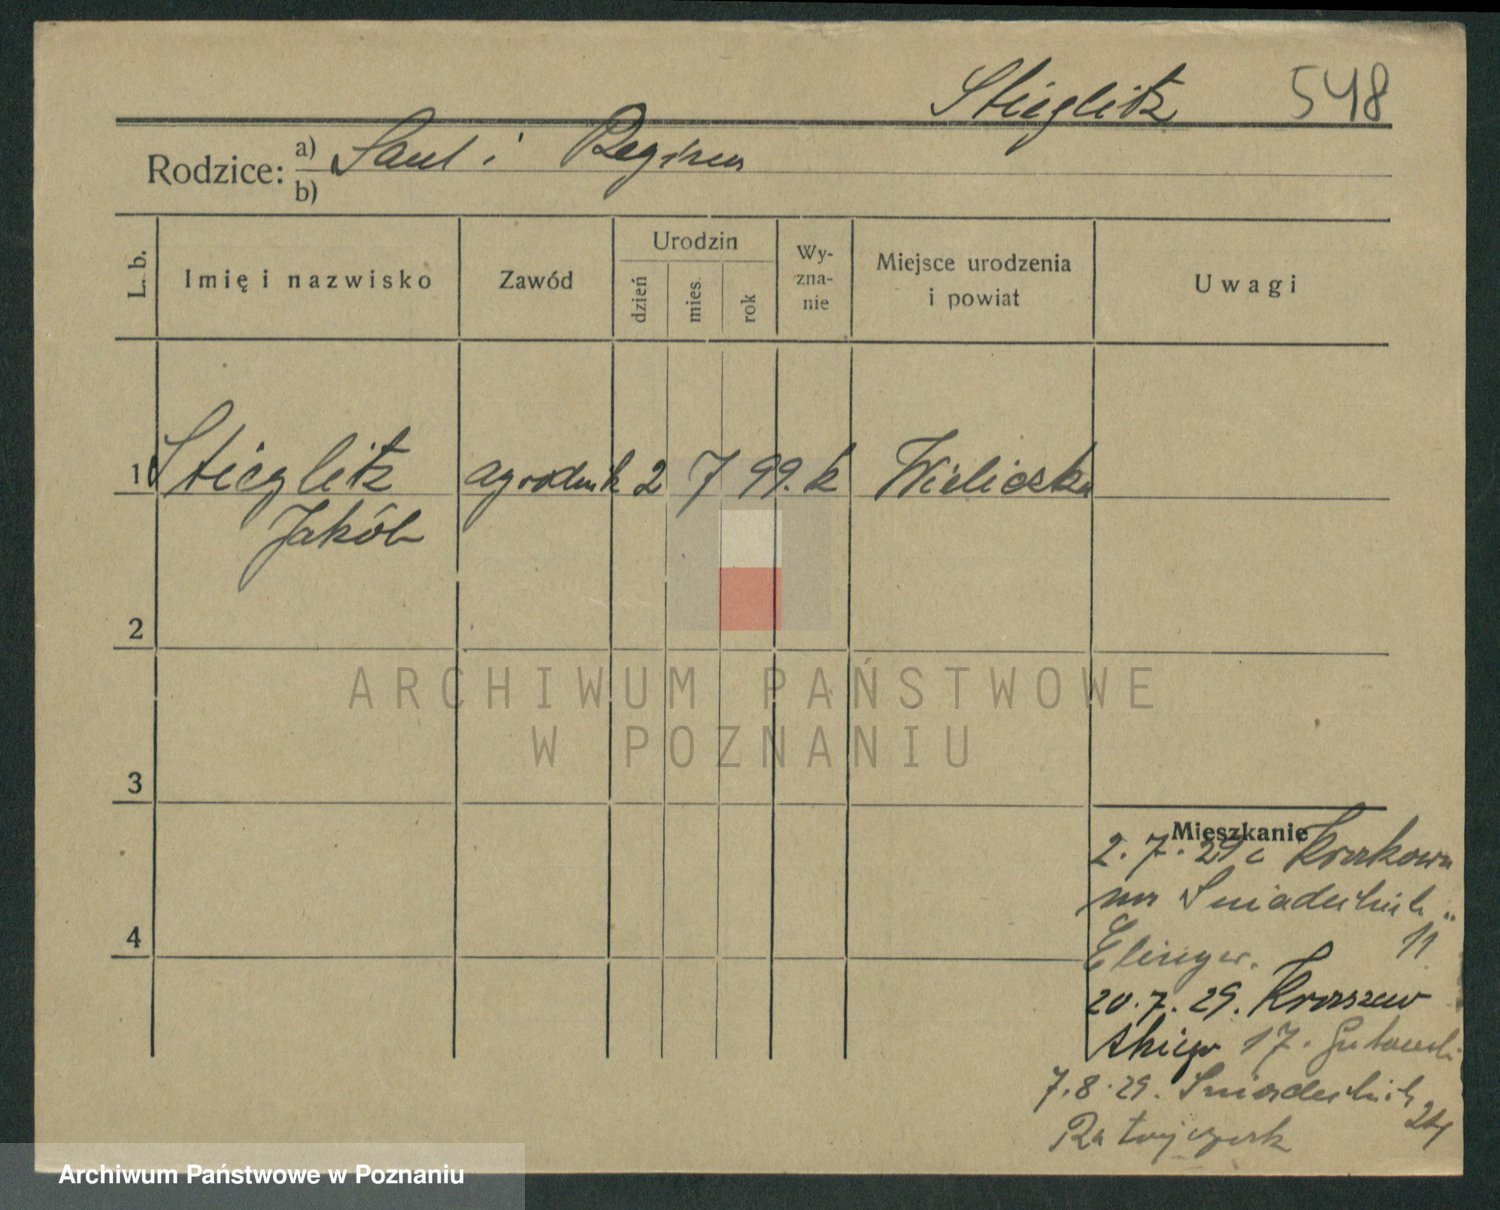 Stieglitz 548
Rodzice: a) Saul i Regina
b)
L. b. Imię i nazwisko Zawód Urodzin dzień mies. rok Wy-zna-nie Miejsce urodzenia i powiat Uwagi
1 Stieglitz ogrodnik 2 7 99. k Wieliczka
Jakób
2
3
Mieszkanie
2. 7. 29 z Krakowa
na Śniadeckich
4
11
20. 7. 29. Kraszew
skiego 17. Gutowski
7. 8. 29. Śniadeckich 24
Ratajczak
ARCHIWUM PAŃSTWOWE
W POZNANIU
Archiwum Państwowe w Poznaniu